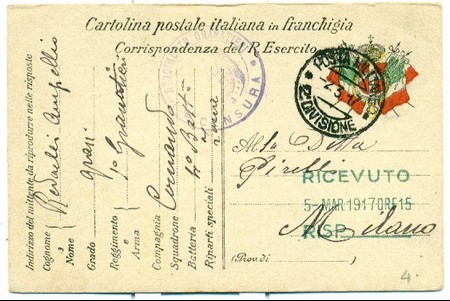 Cartolina postale italiana in franchigia
Corrispondenza del R. Esercito
CENSURA
POSTA MILITARE
2.3.17
2ª DIVISIONE
Indirizzo del mittente da riprodurre nelle risposte
Cognome e Nome
Grado
Reggimento o Arma
1° Granatieri
Compagnia
Squadrone
Batteria
Riparti speciali
Comando
4° Batt
Alla Ditta
Pirelli
RICEVUTO
5-MAR.1917 ORE 15
Milano
RISP.
(Prov. di )
4.